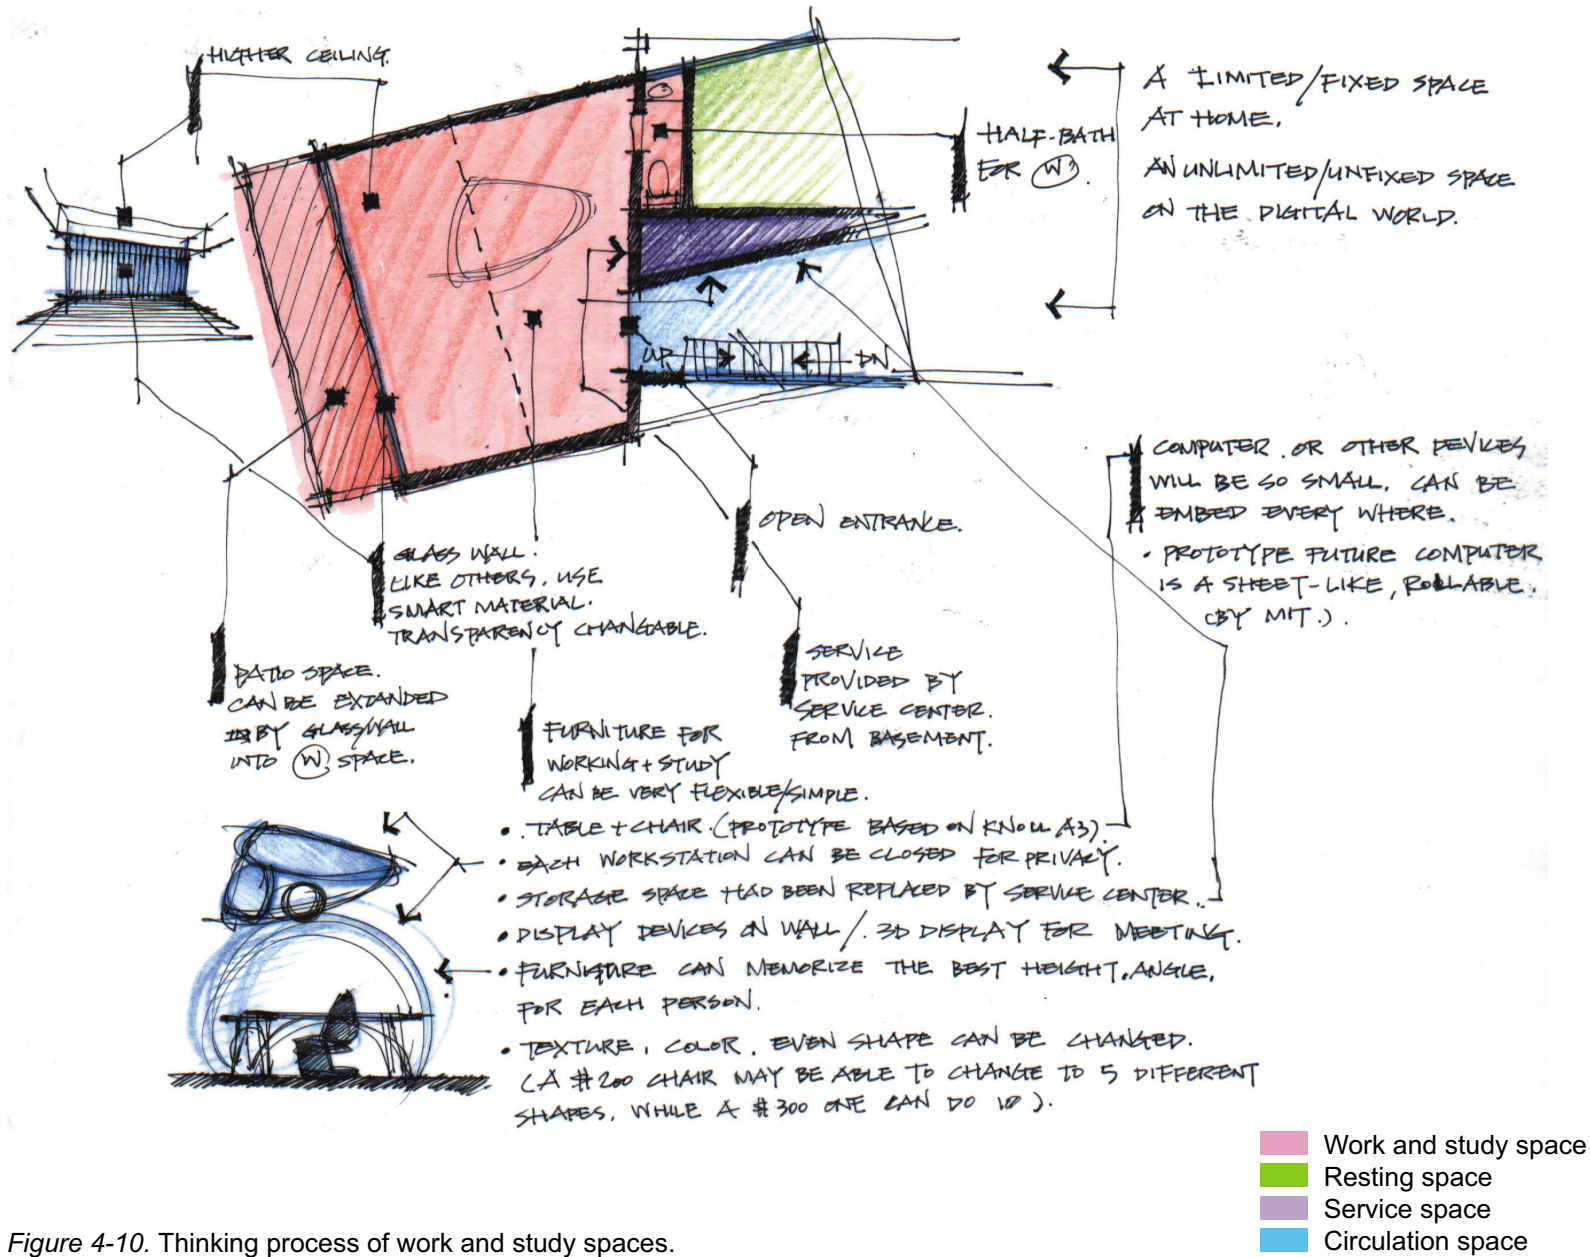 HIGHER CEILING.
A LIMITED/FIXED SPACE
AT HOME.
AN UNLIMITED/UNFIXED SPACE
ON THE DIGITAL WORLD.
HALF-BATH
FOR W.
UP
DN
COMPUTER OR OTHER DEVICES
WILL BE SO SMALL. CAN BE
EMBED EVERY WHERE.
• PROTOTYPE FUTURE COMPUTER
IS A SHEET-LIKE, ROLLABLE.
(BY MIT.).
OPEN ENTRANCE.
GLASS WALL.
LIKE OTHERS, USE
SMART MATERIAL.
TRANSPARENCY CHANGABLE.
SERVICE
PROVIDED BY
SERVICE CENTER.
FROM BASEMENT.
PATIO SPACE.
CAN BE EXTANDED
BY GLASS WALL
INTO W SPACE.
FURNITURE FOR
WORKING + STUDY
CAN BE VERY FLEXIBLE/SIMPLE.
• TABLE + CHAIR. (PROTOTYPE BASED ON KNOLL A3).
• EACH WORKSTATION CAN BE CLOSED FOR PRIVACY.
• STORAGE SPACE HAD BEEN REPLACED BY SERVICE CENTER.
• DISPLAY DEVICES ON WALL/. 3D DISPLAY FOR MEETING.
• FURNITURE CAN MEMORIZE THE BEST HEIGHT, ANGLE,
FOR EACH PERSON.
• TEXTURE, COLOR, EVEN SHAPE CAN BE CHANGED.
(A $200 CHAIR MAY BE ABLE TO CHANGE TO 5 DIFFERENT
SHAPES, WHILE A $300 ONE CAN DO 10).
Work and study space
Resting space
Service space
Circulation space
Figure 4-10. Thinking process of work and study spaces.